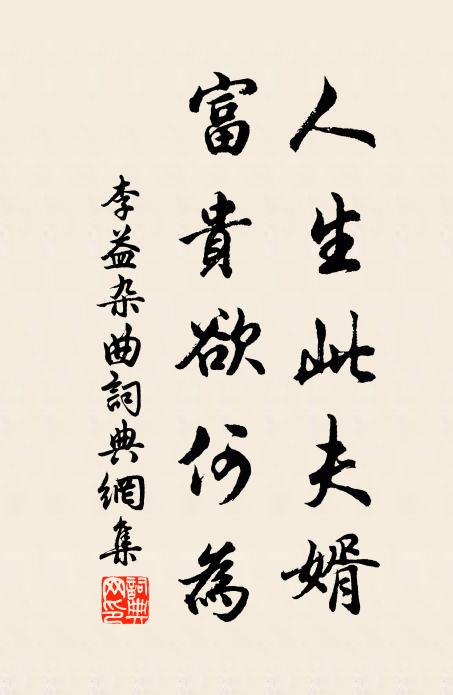 人生此夫婿
富貴欲何為
李益杂曲詞典網集
詞典網印